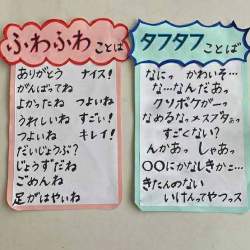 ふわふわことば
ありがとう　ナイス!
がんばってね
よかったね　つよいね
うれしいね　すごい!
つよいね　キレイ!
だいじょうぶ?
じょうずだね
ごめんね
足がはやいね
タフタフことば
なにっ　かわいそ…
な…なんだあっ
クソボケがーっ
なめるなっメスブタぁっ
すごくない?
んかあっ　しゃあっ
○○にかなしきかこ…
きたんのない
いけんってやつっス